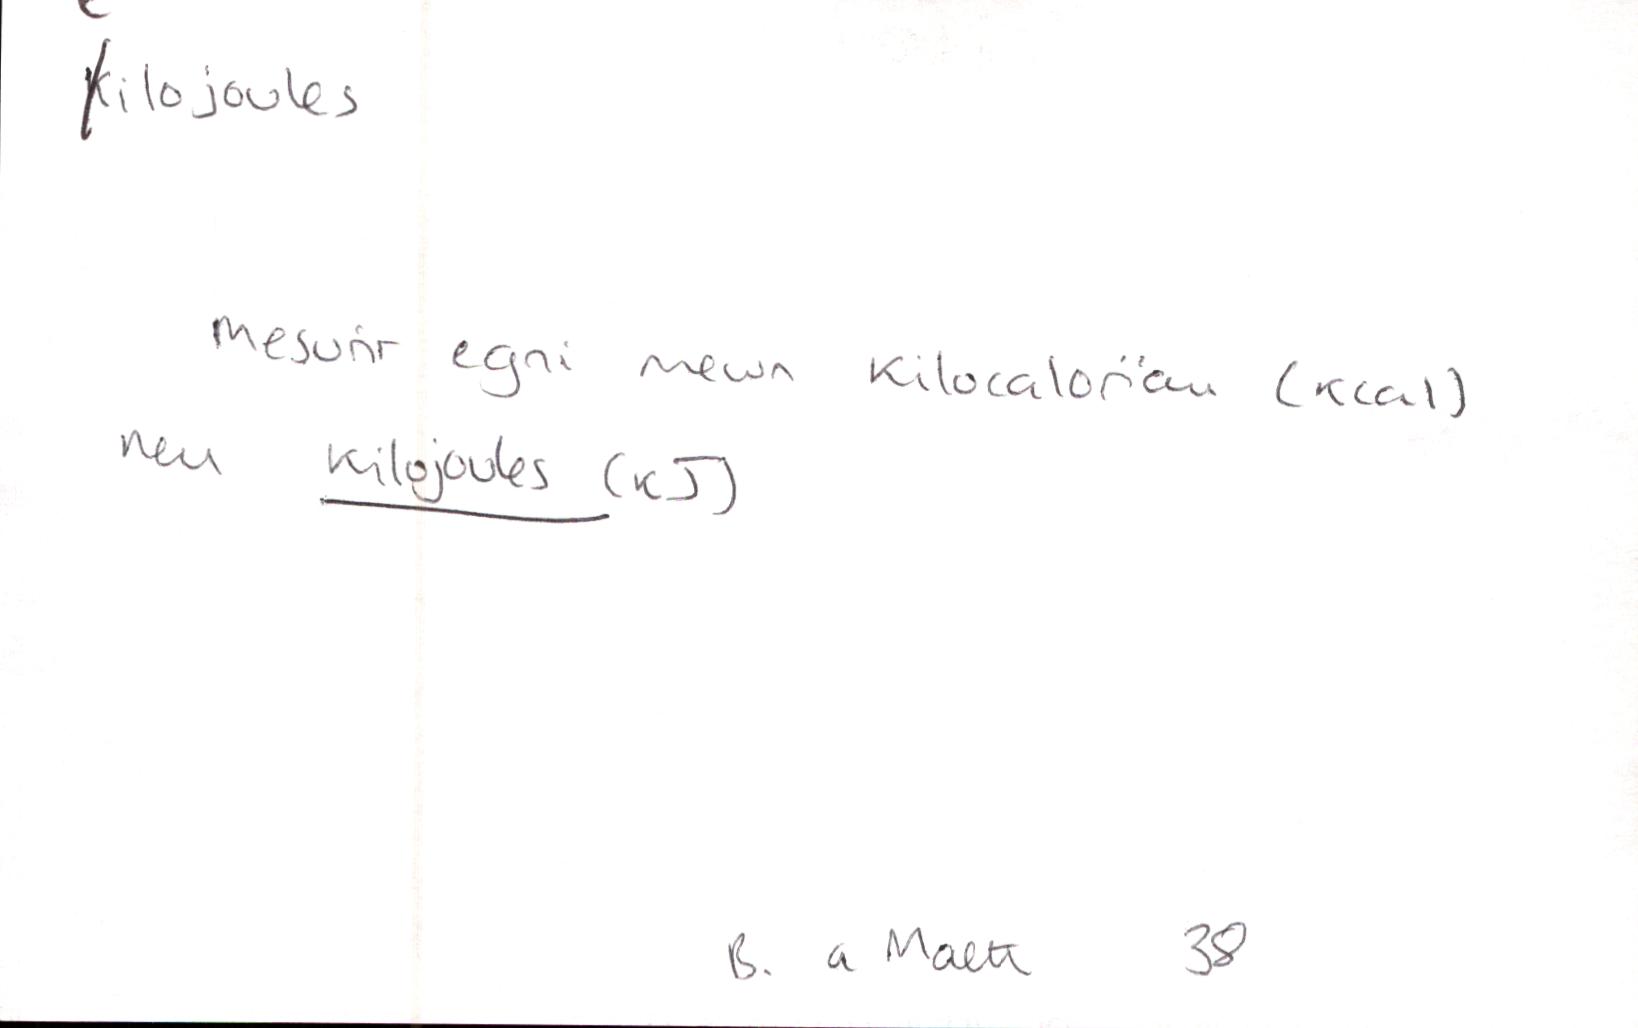 Kilojoules
Mesurir egni mewn kilocalorïau (kcal)
neu kilojoules (kJ)
B. a Maeth 38